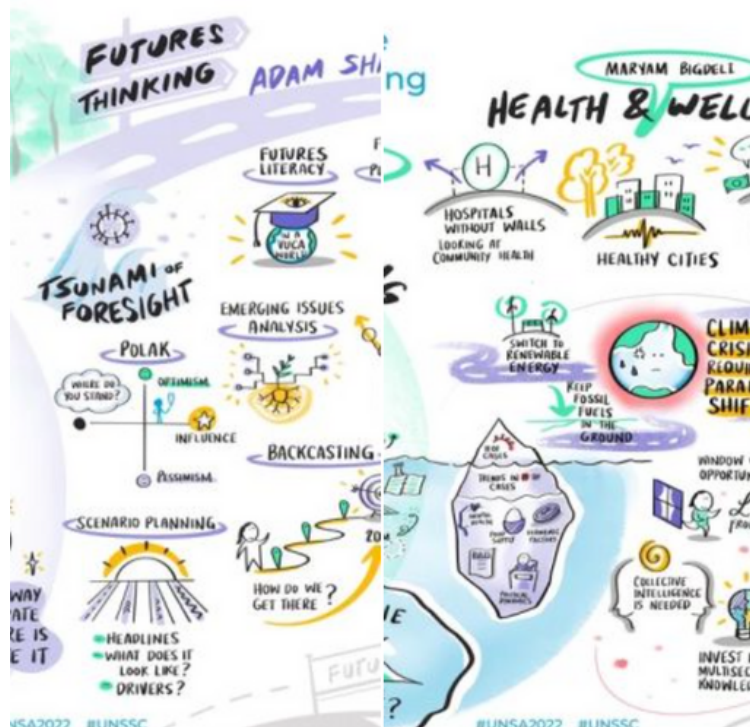 FUTURES
THINKING
ADAM
FUTURES
LITERACY
IN A
VUCA
WORLD
TSUNAMI OF
FORESIGHT
EMERGING ISSUES
ANALYSIS
POLAK
WHERE DO
YOU STAND?
OPTIMISM
INFLUENCE
PESSIMISM
BACKCASTING
SCENARIO PLANNING
HOW DO WE
GET THERE?
HEADLINES
WHAT DOES IT
LOOK LIKE?
DRIVERS?
WAY
ATE
RE IS
E IT
FUTU
NSA2022 #UNSSC
ng
MARYAM BIGDELI
HEALTH & WELL
H
HOSPITALS
WITHOUT WALLS
LOOKING AT
COMMUNITY HEALTH
HEALTHY CITIES
SWITCH TO
RENEWABLE
ENERGY
CLIM
CRIS
REQUI
PARA
SHIF
KEEP
FOSSIL
FUELS
IN THE
GROUND
# OF
CASES
TRENDS IN # OF
CASES
MENTAL
HEALTH
FOOD
SUPPLY
ECONOMIC
FACTORS
POLITICAL
DYNAMICS
WINDOW
OPPORTU
COLLECTIVE
INTELLIGENCE
IS NEEDED
INVEST
MULTISEC
KNOWLE
#UNSA2022 #UNSSC